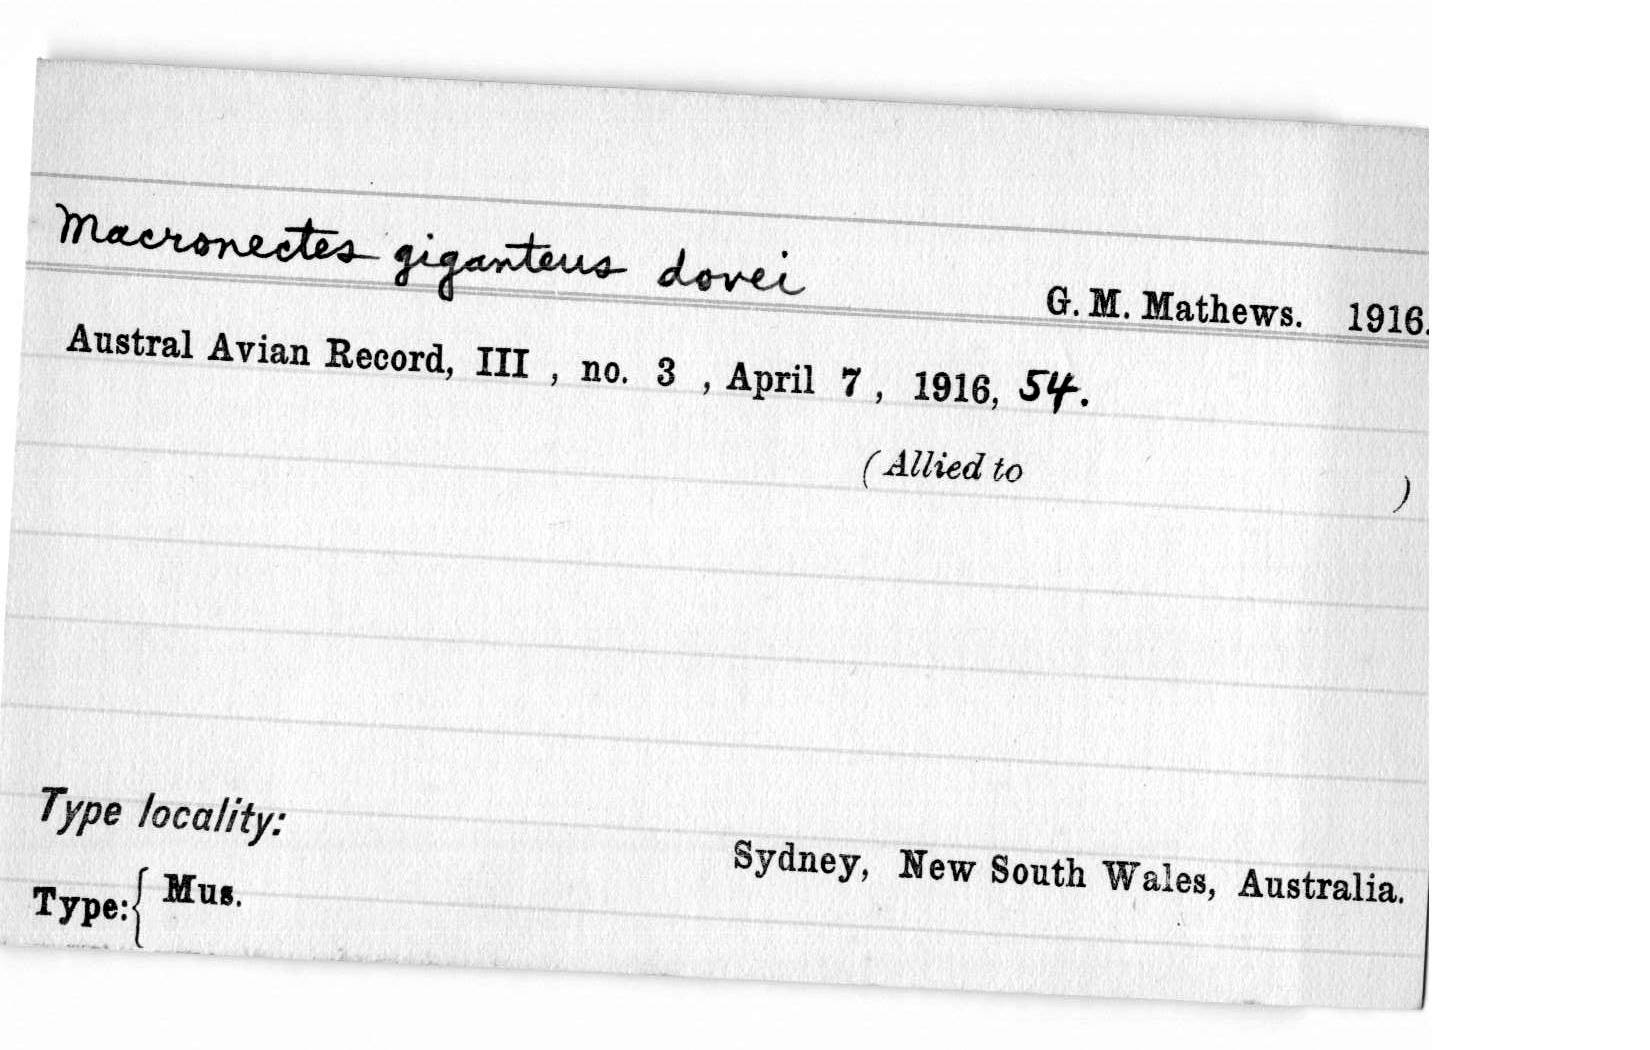 Macronectes giganteus dovei G. M. Mathews. 1916.
Austral Avian Record, III , no. 3 , April 7 , 1916, 54.
(Allied to )
Type locality:
Sydney, New South Wales, Australia.
Type:{ Mus.